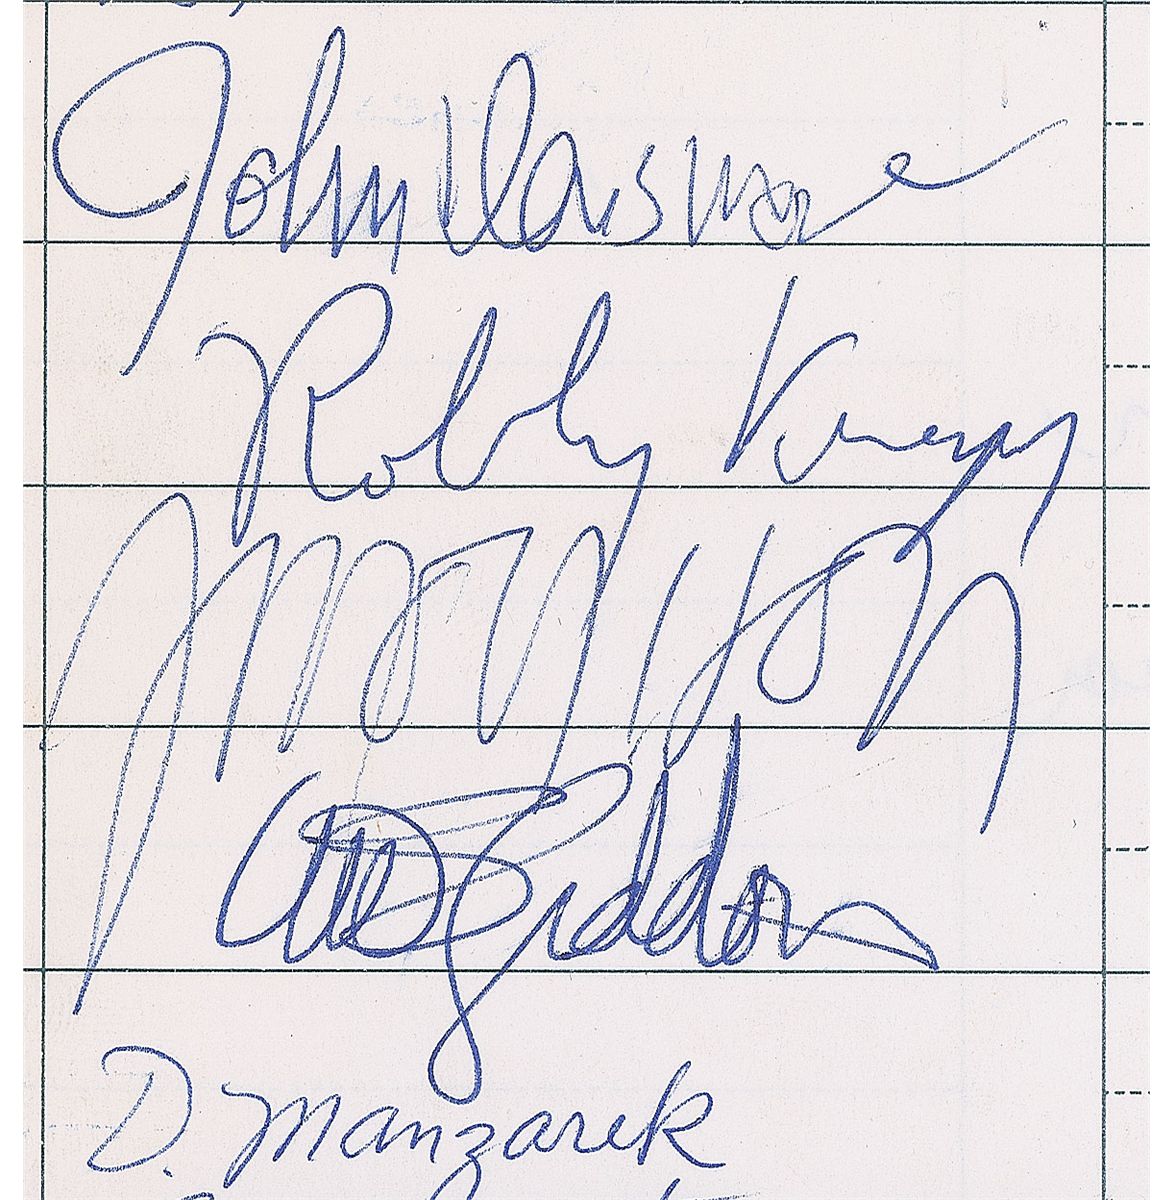 John Densmore
Robby Krieger
JMorrison
Siddons
D. Manzarek